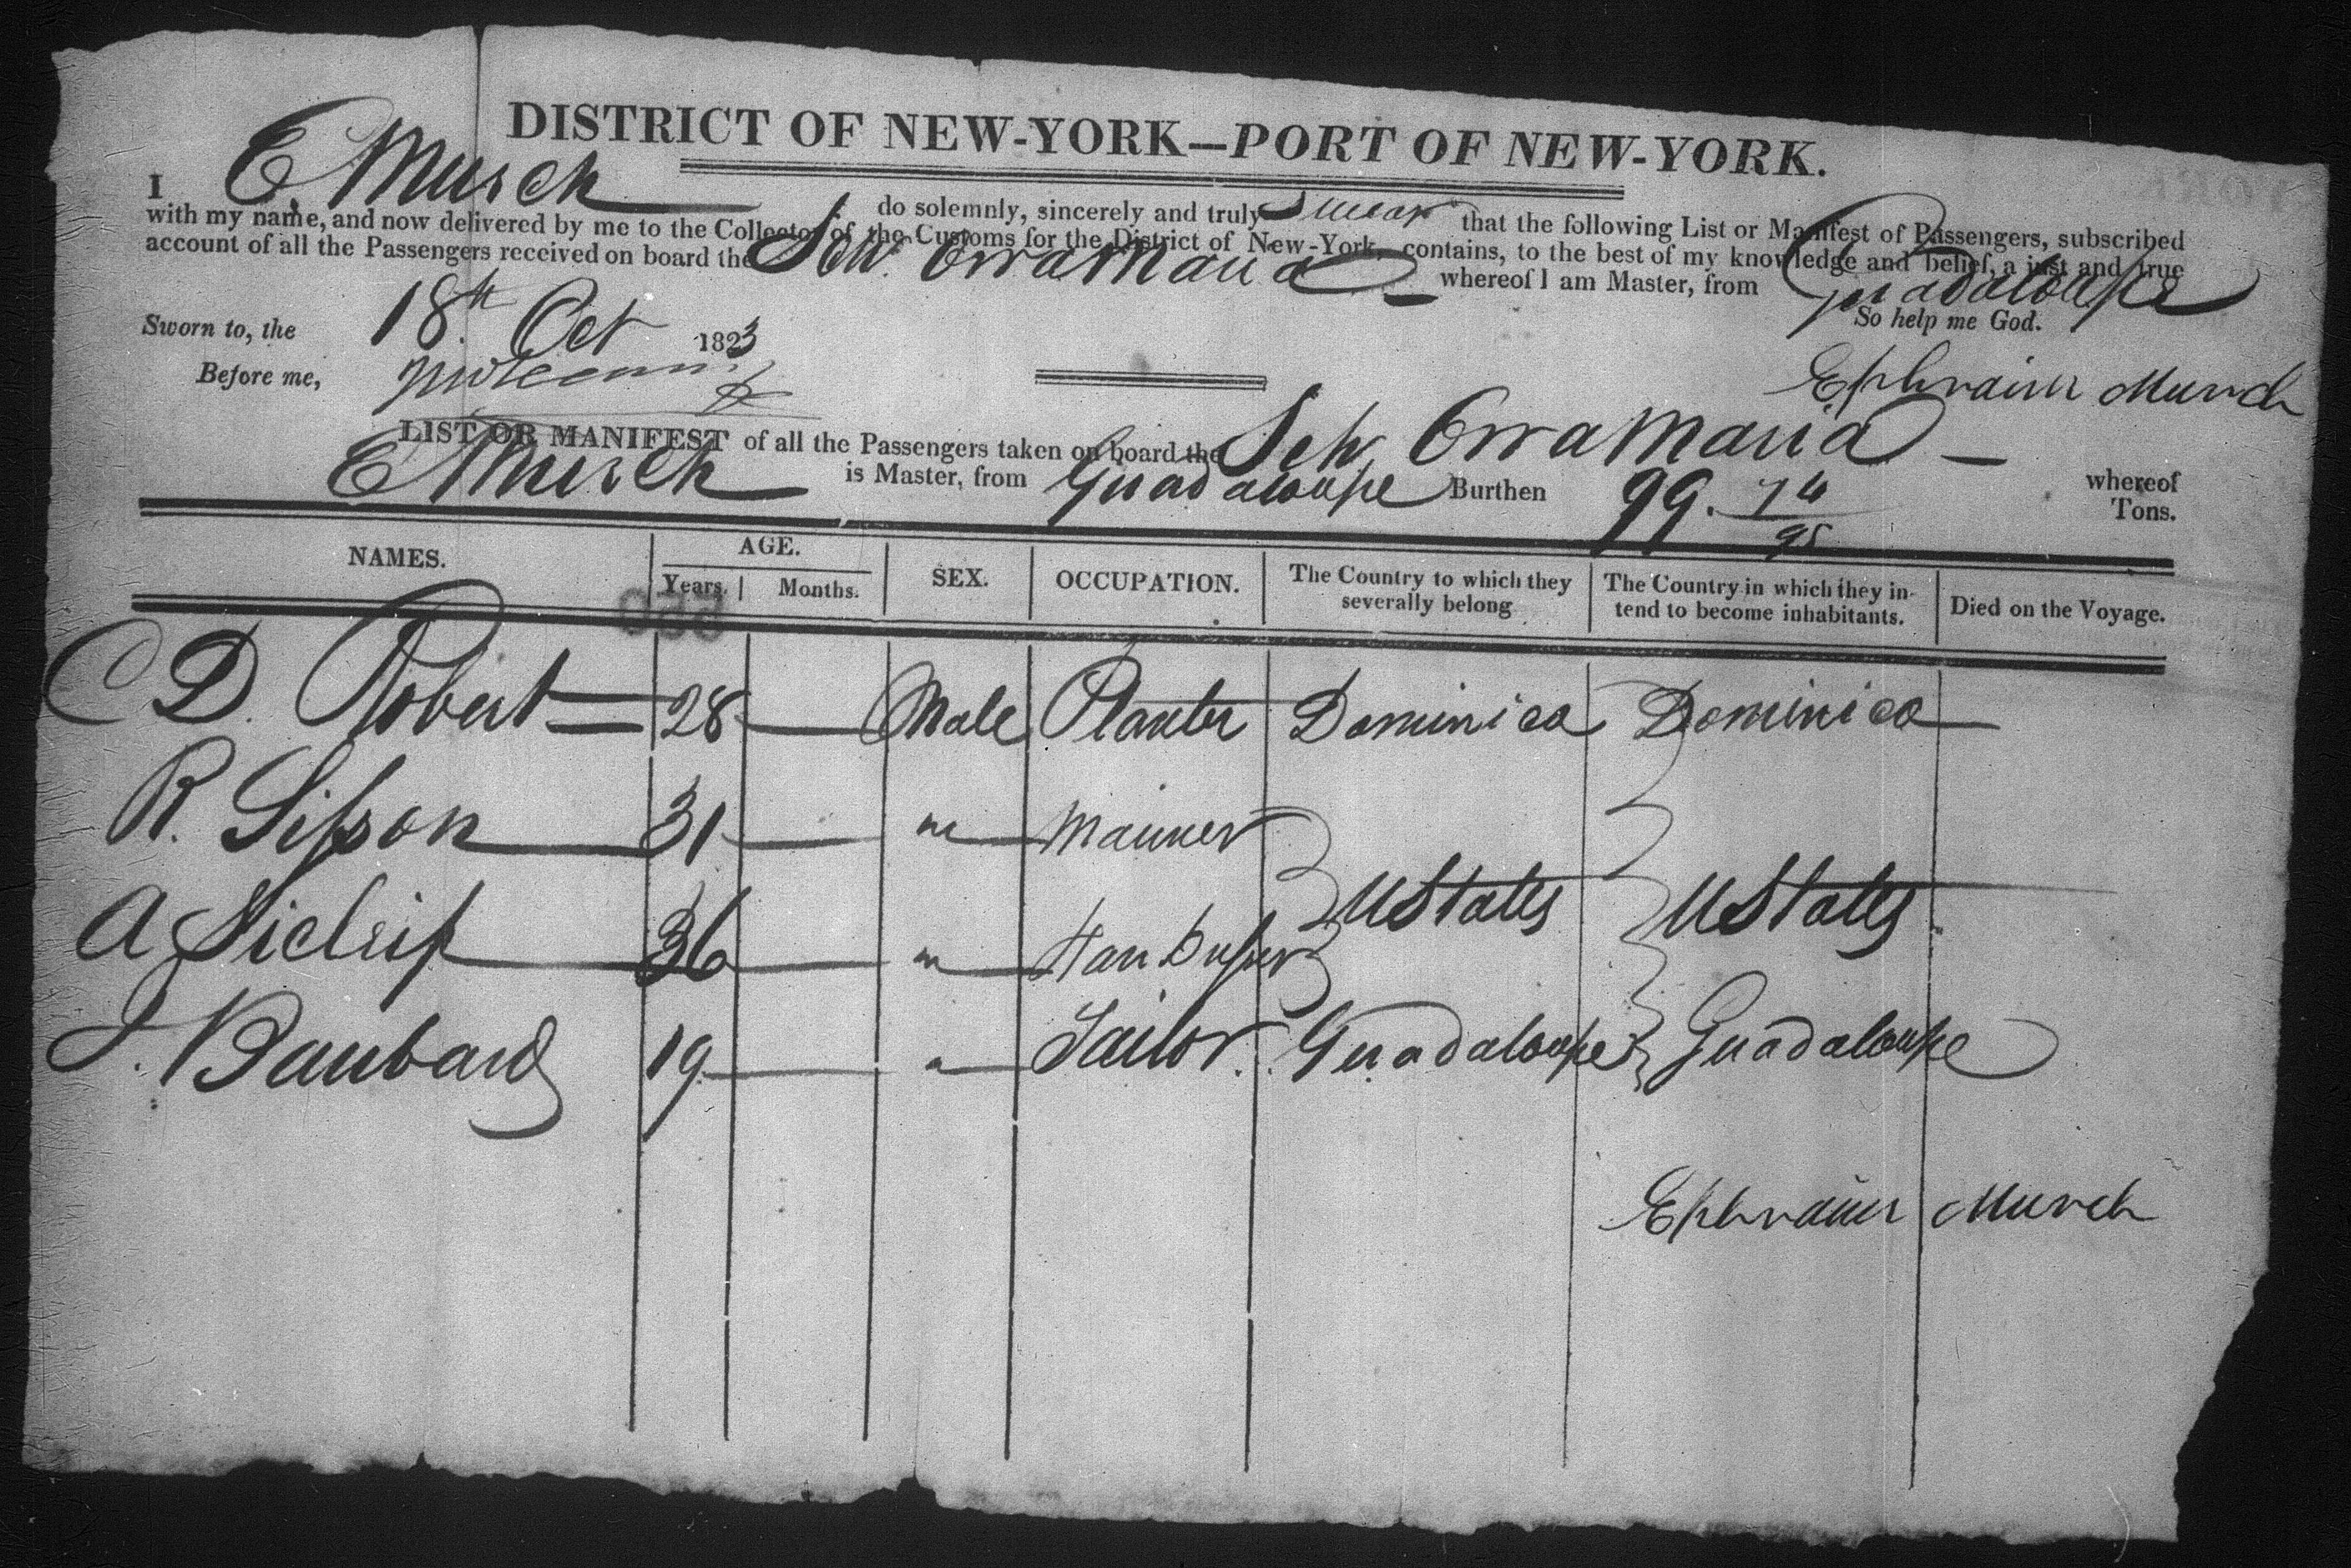 DISTRICT OF NEW-YORK—PORT OF NEW-YORK.
I E Murch do solemnly, sincerely and truly Swear that the following List or Manifest of Passengers, subscribed
with my name, and now delivered by me to the Collector of the Customs for the District of New-York, contains, to the best of my knowledge and belief, a just and true
account of all the Passengers received on board the Schr. Orra Maria whereof I am Master, from Guadaloupe
So help me God.
Sworn to, the 18th Oct 1823
Before me,
Ephraim Murch
LIST OR MANIFEST of all the Passengers taken on board the Schr Orra Maria whereof
E Murch is Master, from Guadaloupe Burthen 99. 74/95 Tons.
NAMES. AGE. SEX. OCCUPATION. The Country to which they severally belong The Country in which they intend to become inhabitants. Died on the Voyage.
Years. Months.
C D. Robert 28 Male Planter Dominica Dominica
R. Sisson 31 m Mariner
UStates UStates
A 36 m
J. Baubard 19 Tailor. Guadaloupe Guadaloupe
Ephraim Murch